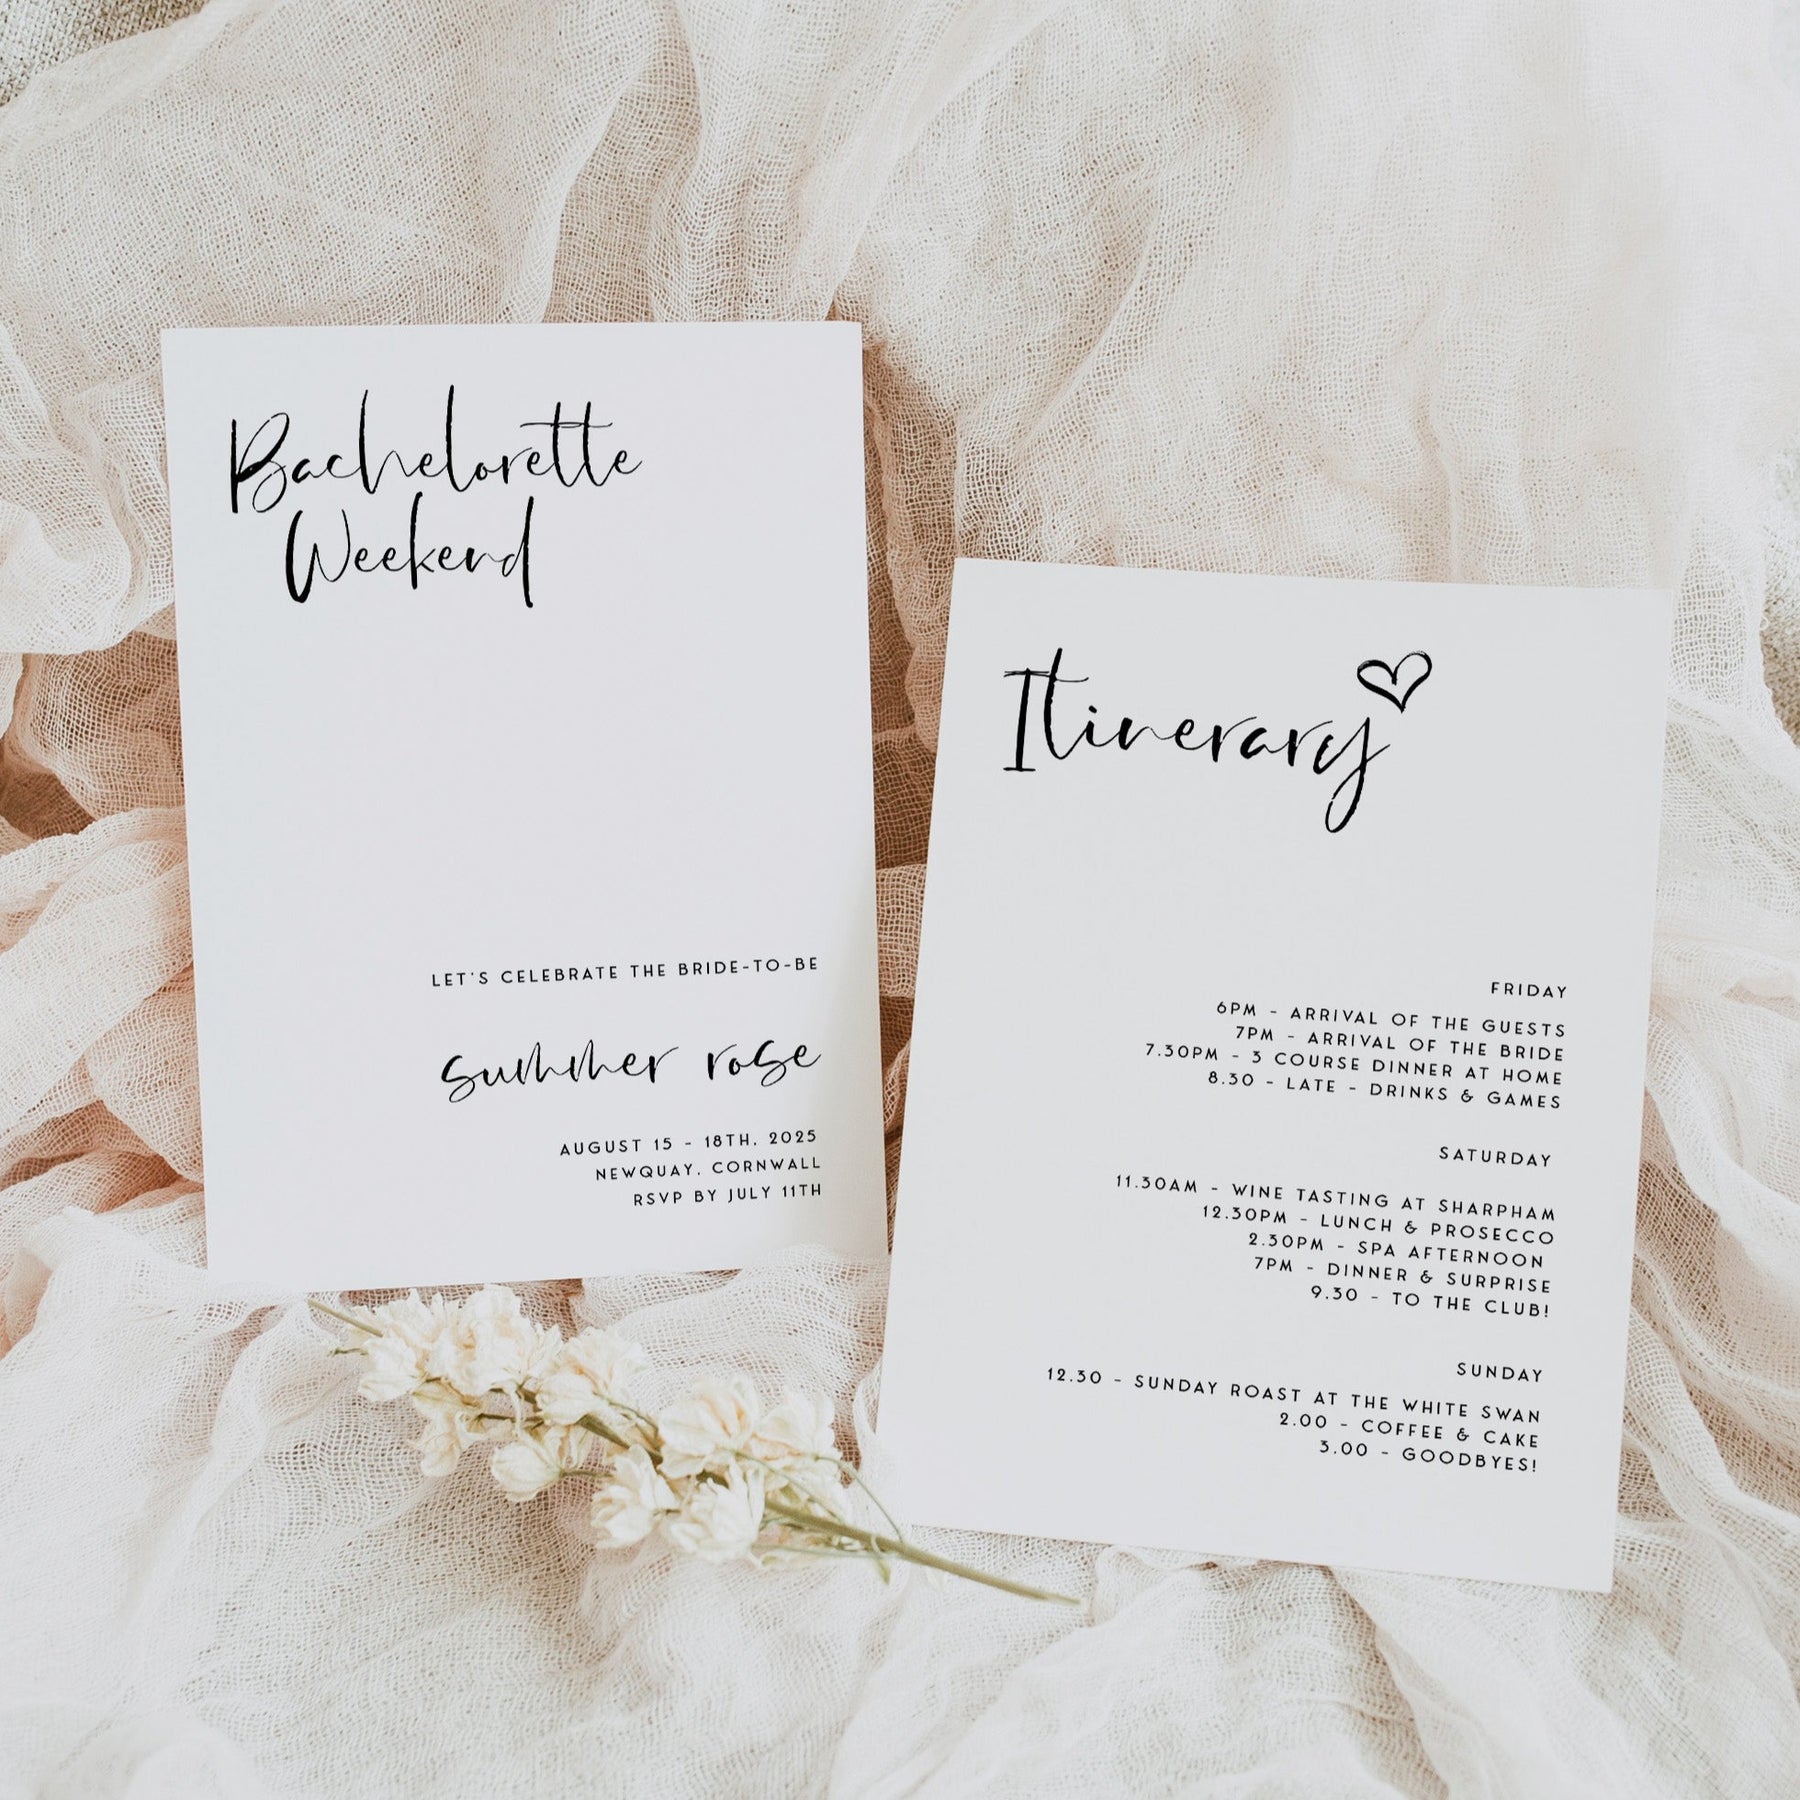 Bachelorette
Weekend
LET'S CELEBRATE THE BRIDE-TO-BE
summer rose
AUGUST 15 - 18TH, 2025
NEWQUAY, CORNWALL
RSVP BY JULY 11TH
Itinerary
FRIDAY
6PM - ARRIVAL OF THE GUESTS
7PM - ARRIVAL OF THE BRIDE
7.30PM - 3 COURSE DINNER AT HOME
8.30 - LATE - DRINKS & GAMES
SATURDAY
11.30AM - WINE TASTING AT SHARPHAM
12.30PM - LUNCH & PROSECCO
2.30PM - SPA AFTERNOON
7PM - DINNER & SURPRISE
9.30 - TO THE CLUB!
SUNDAY
12.30 - SUNDAY ROAST AT THE WHITE SWAN
2.00 - COFFEE & CAKE
3.00 - GOODBYES!